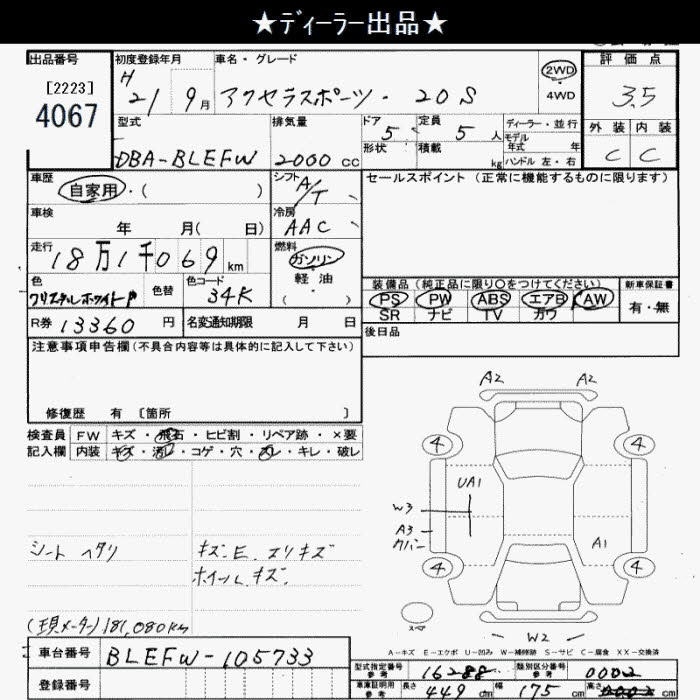 ★ディーラー出品★
出品番号 初度登録年月 車名・グレード 評価点
[2223]
4067
H 21 9月 アクセラスポーツ・ 20S 2WD 4WD 3.5
型式 排気量 ドア 5 定員 5人 ディーラー・並行 外装 内装
形状 積載 kg モデル年式 年
DBA-BLEFW 2000cc ハンドル 左・右 C C
車歴 自家用・( ) シフト A/T セールスポイント(正常に機能するものに限ります)
車検 年 月( 日) 冷房 AAC
走行 18万1千069km 燃料 ガソリン
軽油
( )
色 クリスタルホワイトP 色替 色コード 34K
装備品(純正品に限り○をつけてください) 新車保証書
PS PW ABS エアB AW 有・無
SR ナビ TV カワ
R券 13360円 名変通知期限 月 日 後日品
注意事項申告欄(不具合内容等は具体的に記入して下さい)
修復歴 有 〔箇所 〕
検査員 FW キズ・飛石・ヒビ割・リペア跡・×要
記入欄 内装 キズ・汚レ・コゲ・穴・スレ・キレ・破レ
A2 A2
4 4
UA1
W3
A3
カバー
A1
4 4
スペア
W2
シート ヘタリ キズ.E.スリキズ
ホイールキズ.
(現メーター)181,080km
A-キズ E-エクボ U-凹み W-補修跡 S-サビ C-腐食 XX-交換済
車台番号 BLEFW-105733
登録番号
型式指定番号 参考 16288 類別区分番号 参考 0002
車庫証明用 参考 長さ 449cm 幅 175cm 高さ 0002cm